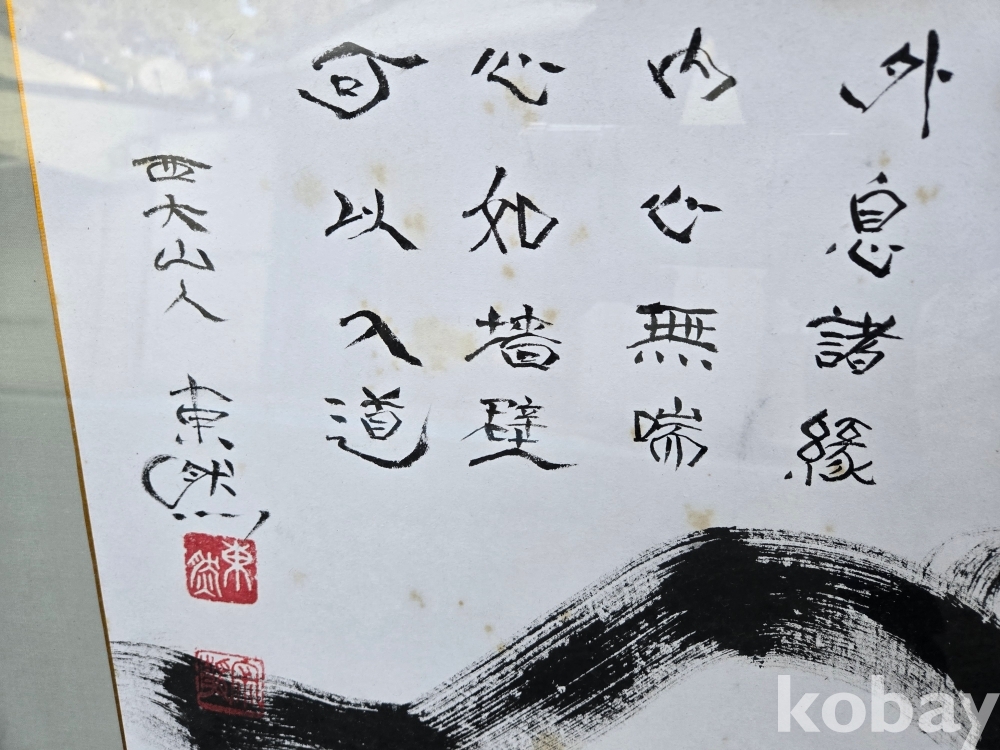 外息諸緣
內心無喘
心如墻壁
可以入道
西大山人 東然
東然
kobay